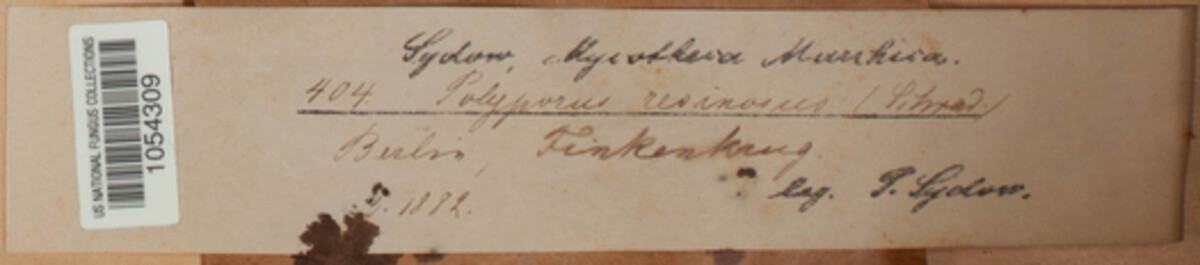 US NATIONAL FUNGUS COLLECTIONS
1054309
Sydow, Mycotheca Marchica.
404. Polyporus resinosus (Schrad.)
Berlin, Finkenkrug
1882.
leg. P. Sydow.